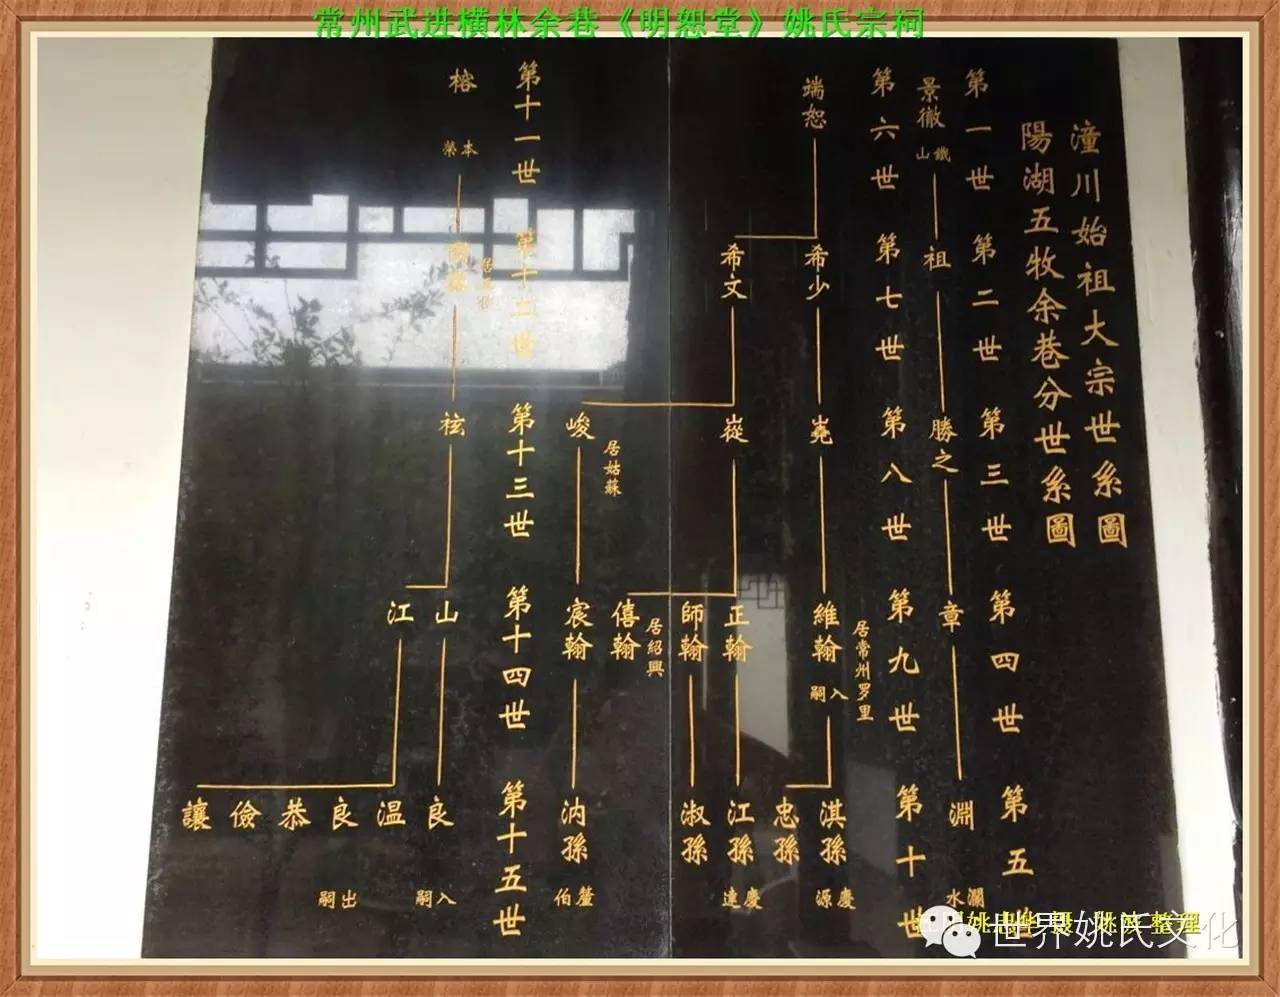 常州武进横林余巷《明恕堂》姚氏宗祠
潼川始祖大宗世系圖
陽湖五牧余巷分世系圖
第一世
第二世
第三世
第四世
第五世
景徹
鐵山
祖
勝之
章
淵
瀾水
第六世
第七世
第八世
第九世
第十世
端恕
希少
希文
堯
嵸
峻
居姑蘇
維翰
入嗣
居常州罗里
正翰
師翰
僖翰
居紹興
宸翰
淇孫
慶源
忠孫
江孫
慶達
淑孫
汭孫
釐伯
第十一世
第十二世
第十三世
第十四世
第十五世
榕
本榮
祛
山
江
良
入嗣
温
良
出嗣
恭
儉
讓
世界姚氏文化
整理